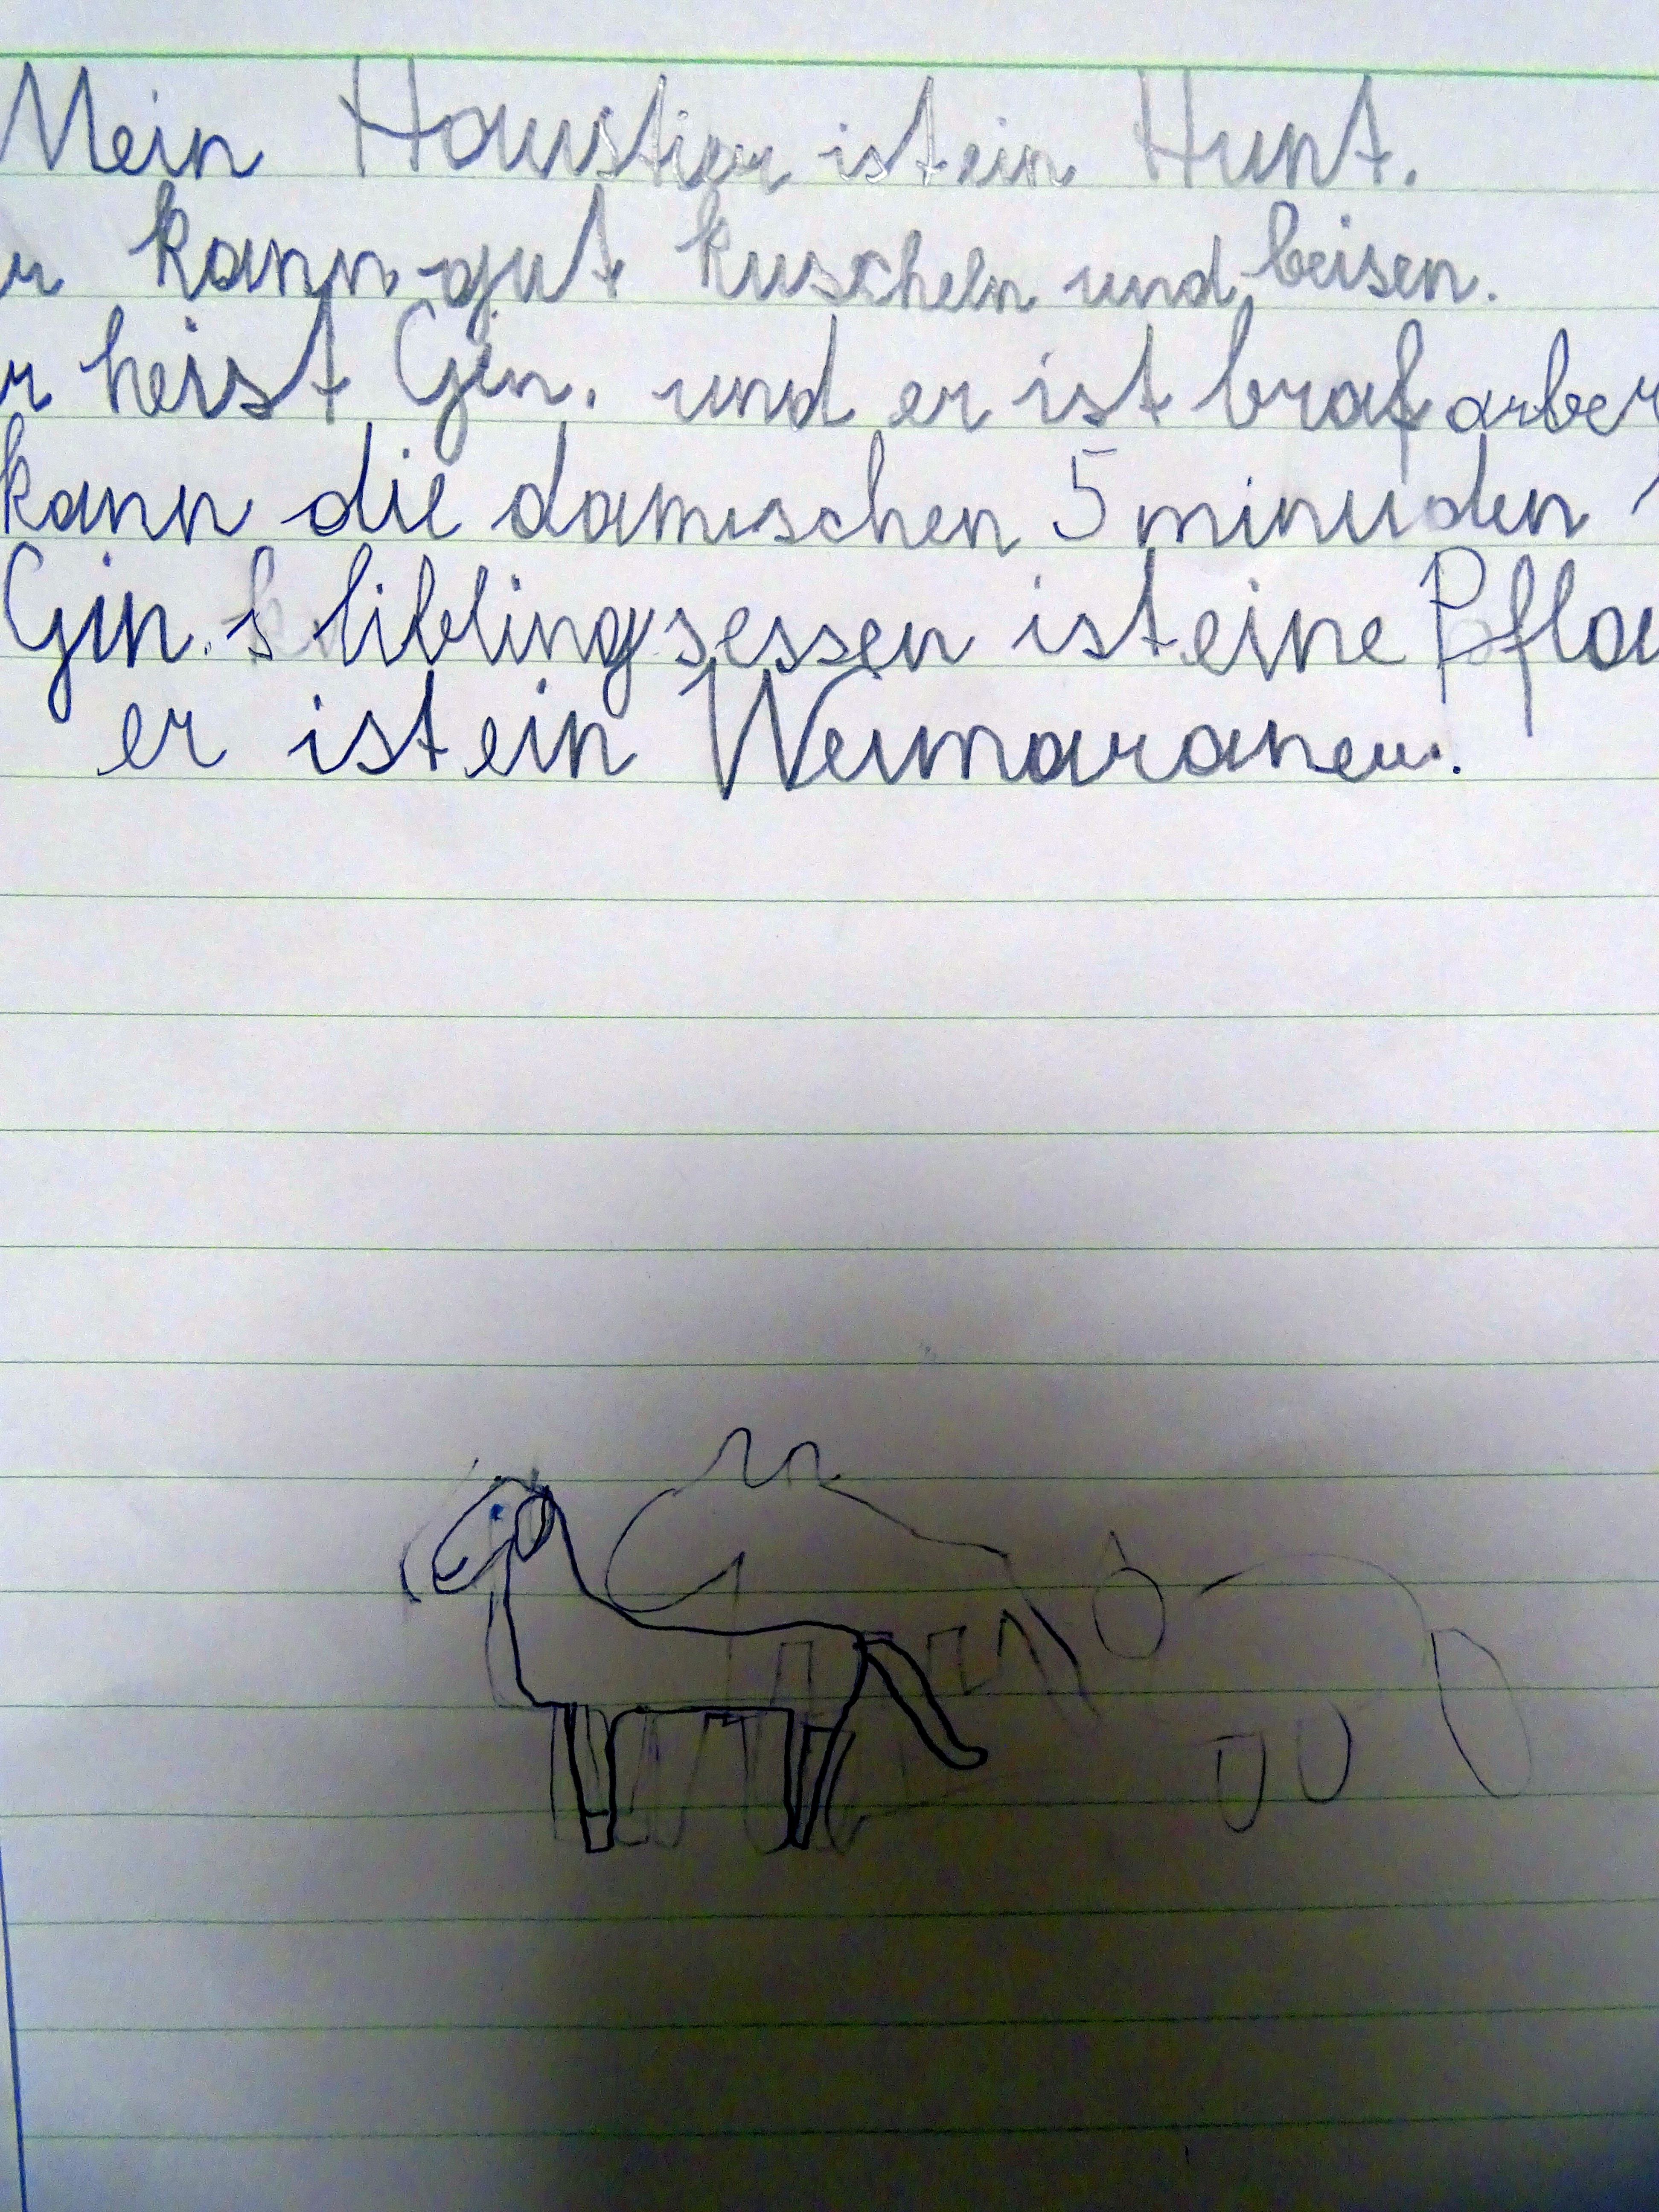 Mein Haustier ist ein Hunt.
er kann gut kuscheln und beisen.
er heist Gin. und er ist braf arber
kann die damischen 5 minuden
Gin.s liblingsessen ist eine Pfla
er ist ein Weimaraner.